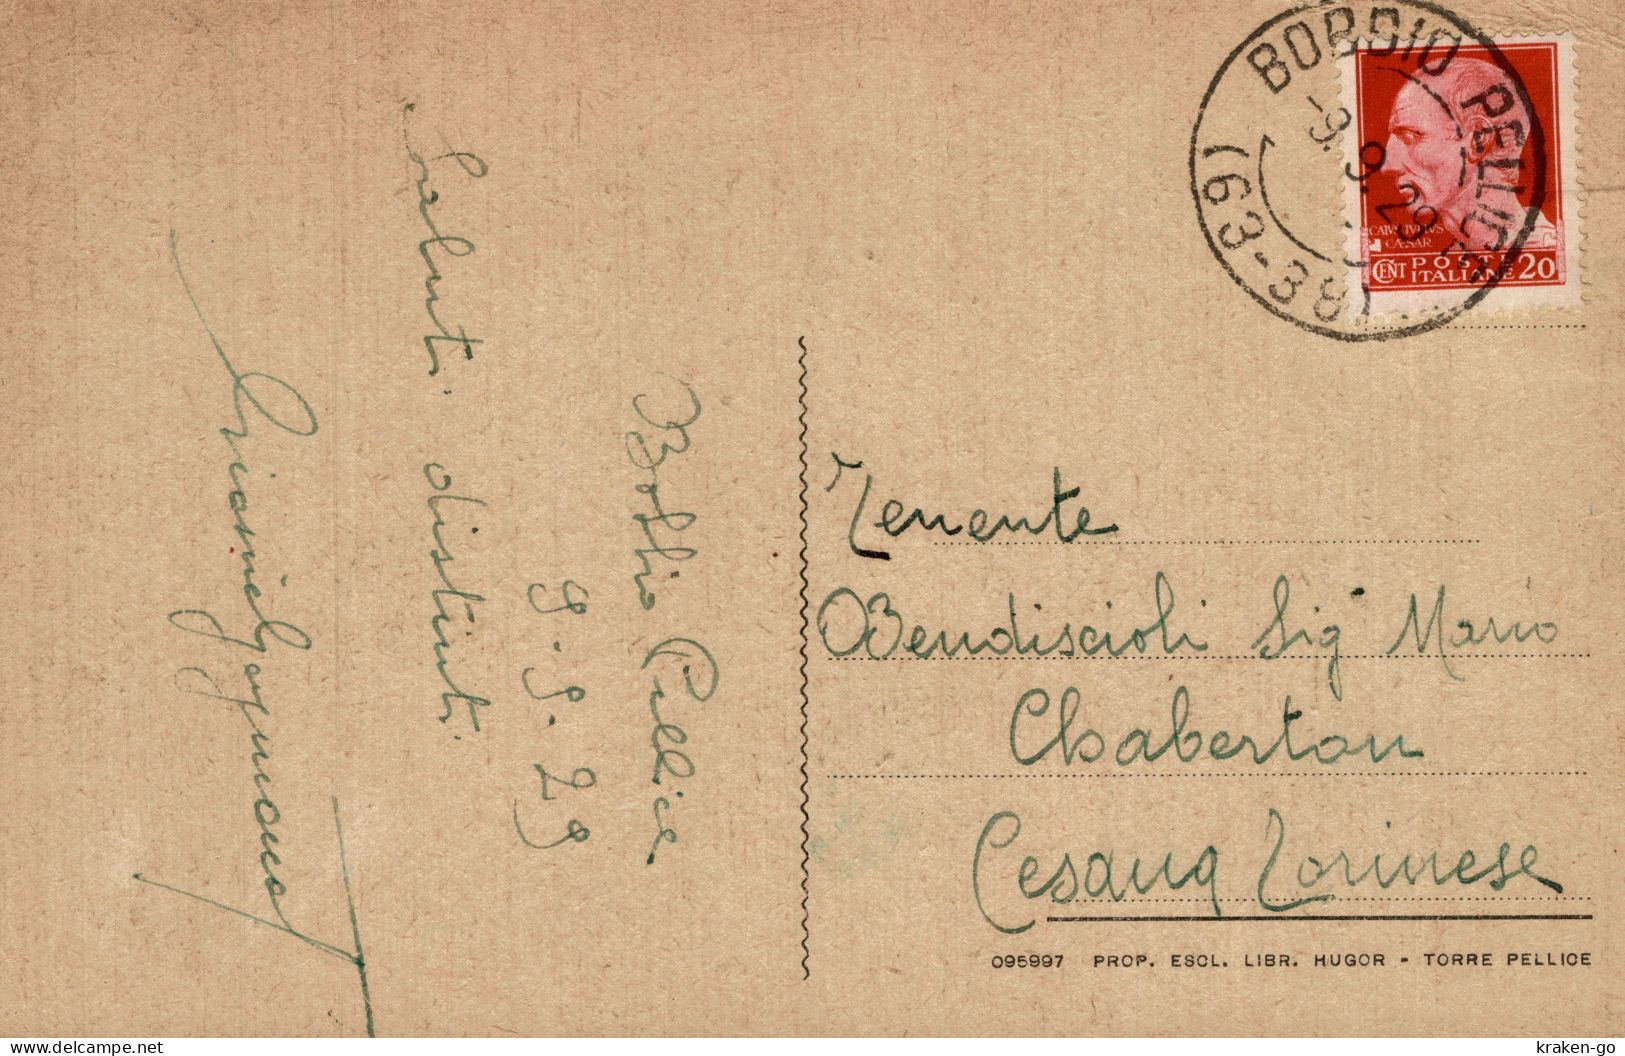 BOBBIO PELLICE
-9.9.29
(63-38)
CAIVS IVLIVS
CAESAR
CENT POSTE
ITALIANE 20
Bobbio Pellice
9.9.29
Saluti distinti
Tenente
Bendiscioli Sig Mario
Chaberton
Cesana Torinese
095997 PROP. ESCL. LIBR. HUGOR - TORRE PELLICE
kraken-go